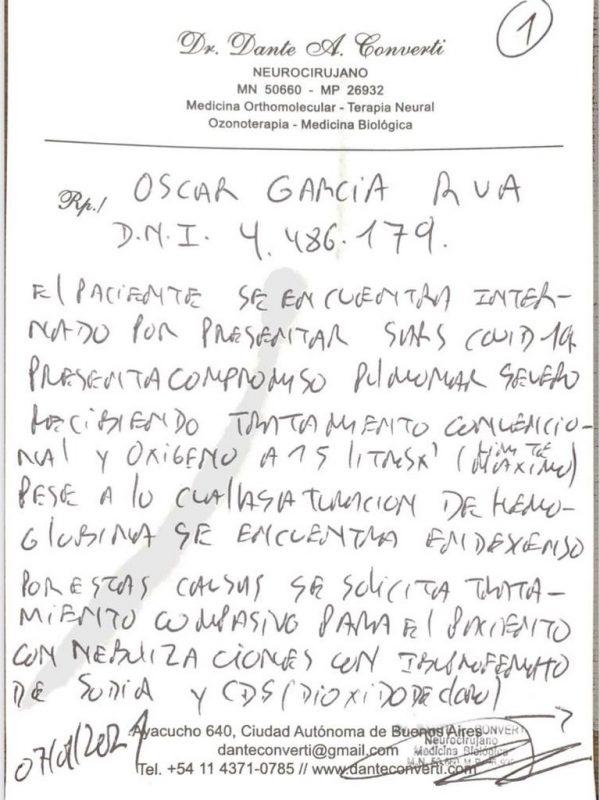 1
Dr. Dante A. Converti
NEUROCIRUJANO
MN 50660 - MP 26932
Medicina Orthomolecular - Terapia Neural
Ozonoterapia - Medicina Biológica
Rp./ OSCAR GARCIA RUA
D.N.I. 4.486.179.
El PACIENTE SE ENCUENTRA INTER-
NADO POR PRESENTAR SARS COVID 19
PRESENTA COMPROMISO PULMONAR SEVERO
RECIBIENDO TRATAMIENTO CONVENCIO-
NAL Y OXIGENO A 15 LITROSX' (LIMITE MAXIMO)
PESE A LO CUAL LA SATURACION DE HEMO-
GLOBINA SE ENCUENTRA EN DEXENSO
POR ESTAS CAUSAS SE SOLICITA TRATA-
MIENTO COMPASIVO PARA El PACIENTE
CON NEBULIZACIONES CON IBUPROFENATO
DE SODIO Y CDS (DIOXIDO DE CLORO)
07/01/2021
Ayacucho 640, Ciudad Autónoma de Buenos Aires
danteconverti@gmail.com
Tel. +54 11 4371-0785 // www.danteconverti.com
CONVERTI
Neurocirujano
Medicina Biológica